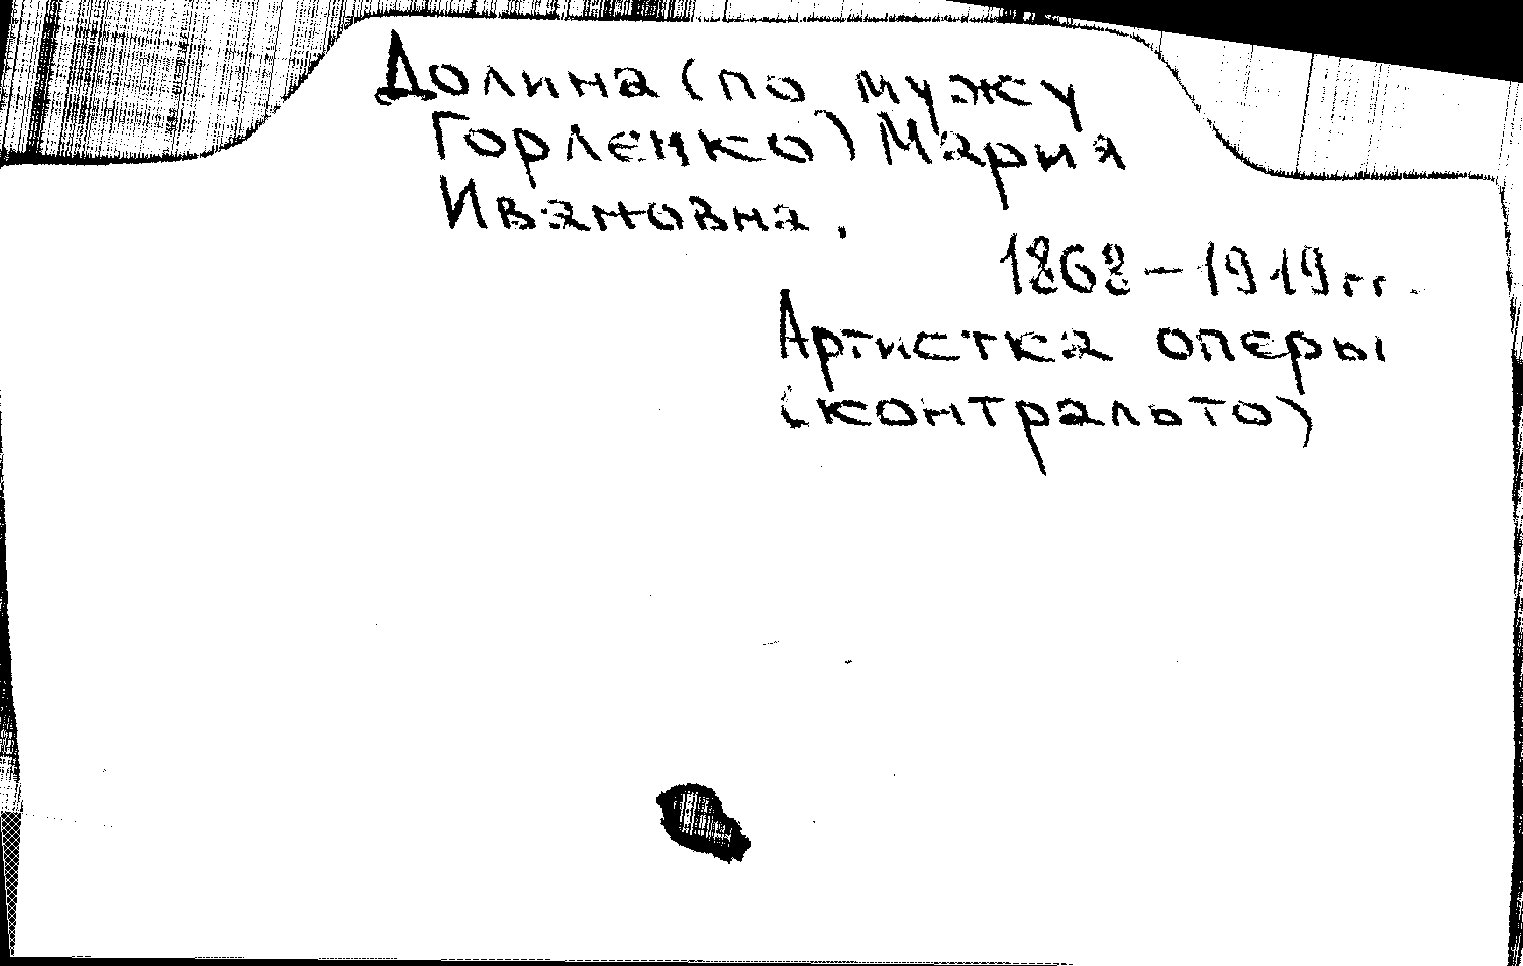 Долина (по мужу
Горленко) Мария
Ивановна.
1868-1919гг.
Артистка оперы
(контральто)